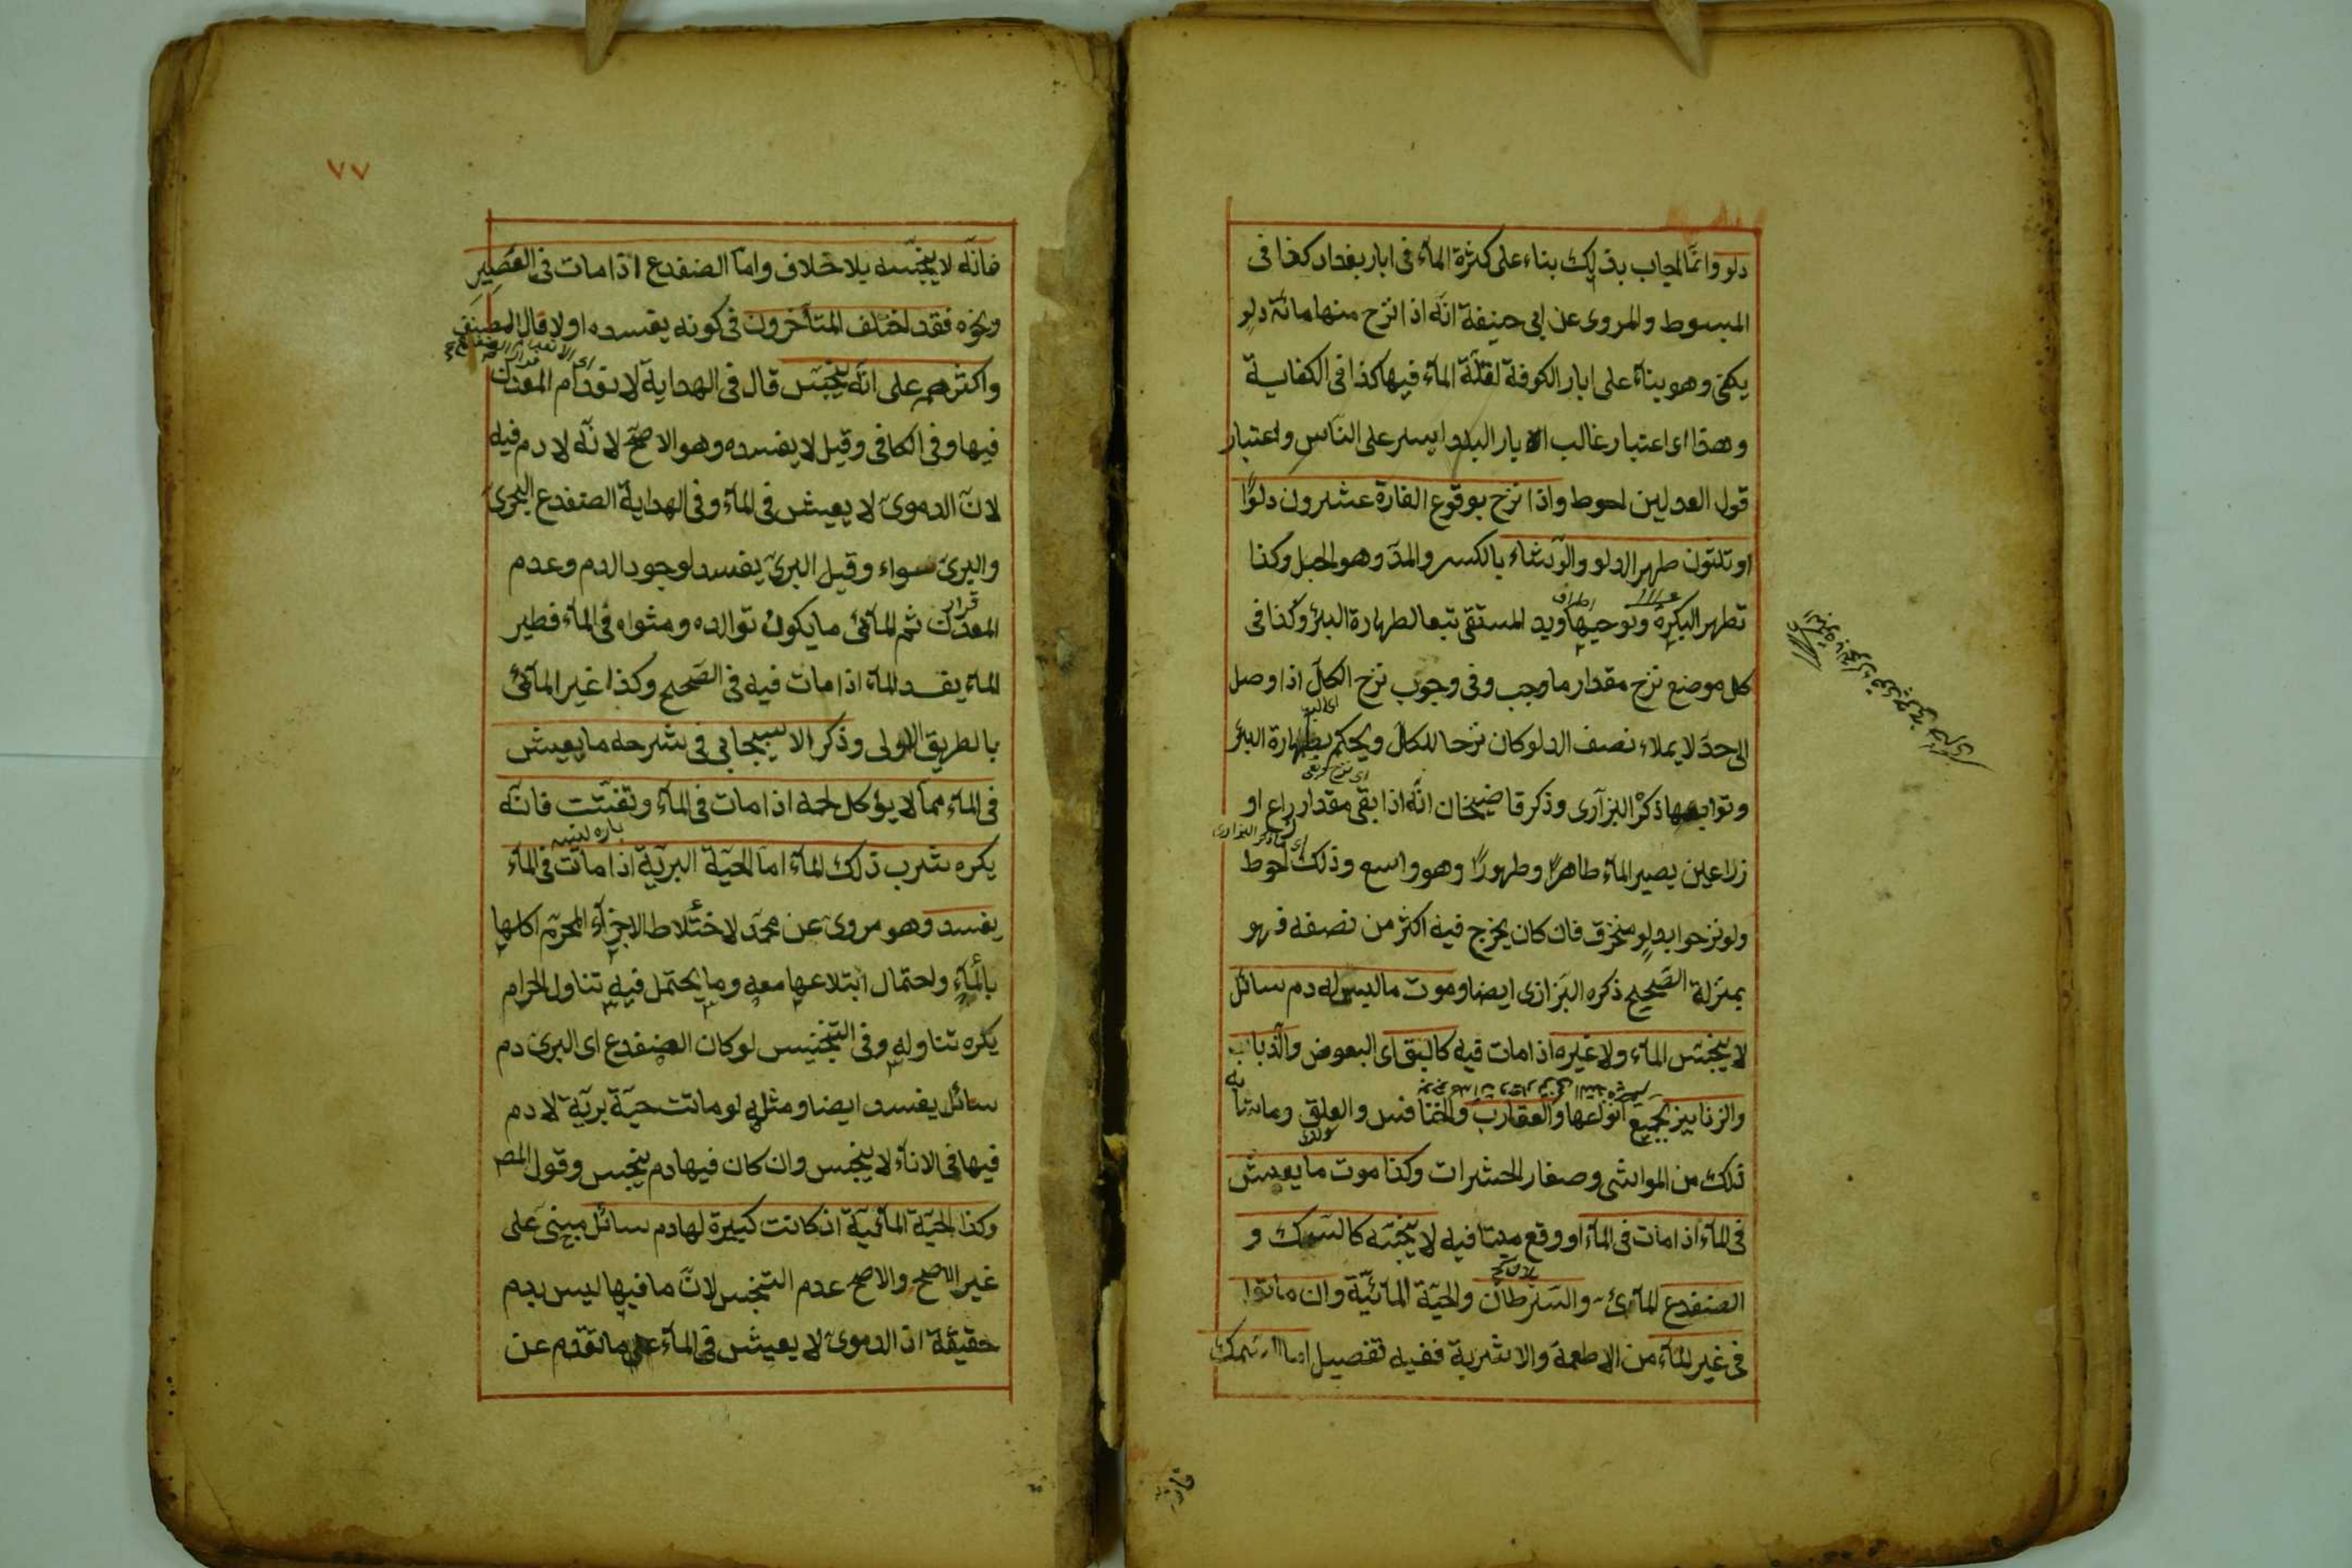 دلو وانما اجاب بذلك بناء على كثرة الماء فى ابار بغداد كذا فى
المبسوط والمروى عن ابى حنيفة انه اذا نزح منها مائة دلو
يكفى وهو بناء على ابار الكوفة لقلة الماء فيها كذا فى الكفاية
وهذا اى اعتبار غالب الابار البلد ايسر على الناس واعتبار
قول العدلين احوط واذا نزح بوقوع الفارة عشرون دلوًا
او ثلثون طهر الدلو والرشاء بالكسر والمدّ وهو الحبل وكذا
تطهر البكرة ونواحيها ويد المستقى تبعا لطهارة البئر وكذا فى
كل موضع نزح مقدار ما وجب وفى وجوب نزح الكل اذا وصل
الى حد لا يملاء نصف الدلو كان نزحا للكل ويحكم بطهارة البئر
وتوابعها ذكر البزازى وذكر قاضيخان انه اذا بقى مقدار ذراع او
ذراعين يصير الماء طاهرًا وطهورًا وهو واسع وذلك احوط
ولو نزحوا بدلو منخرق فان كان يخرج فيه اكثر من نصفه فهو
بمنزلة الصحيح ذكره البزازى ايضا وموت ما ليس له دم سائل
لا ينجس الماء ولا غيره اذا مات فيه كالبق اى البعوض والذباب
والزنابير بجميع انواعها والعقارب والخنافس والعلق وما شابه
ذلك من المواشى وصغار الحشرات وكذا موت ما يعيش
فى الماء اذا مات فى الماء او وقع ميتا فيه لا ينجسه كالسمك و
الضفدع المائى والسرطان والحية المائية وان ماتوا
فى غير الماء من الاطعمة والاشربة ففيه تفصيل اما السمك
٧٧
فانه لا ينجسه بلا خلاف واما الضفدع اذا مات فى العصير
ونحوه فقد اختلف المتأخرون فى كونه يفسده او لا قال المصنف
واكثرهم على انه ينجس قال فى الهداية لانعدام المعدن
فيها وفى الكافى وقيل لا يفسده وهو الاصح لانه لا دم فيه
لان الدموى لا يعيش فى الماء وفى الهداية الضفدع البحرى
والبرى سواء وقيل البرى يفسد لوجود الدم وعدم
المعدن ثم المائى ما يكون توالده ومثواه فى الماء فطير
الماء يفسد الماء اذا مات فيه فى الصحيح وكذا غير المائى
بالطريق الاولى وذكر الاسبيجابى فى شرحه ما يعيش
فى الماء مما لا يؤكل لحمه اذا مات فى الماء وتفتت فانه
يكره شرب ذلك الماء اما الحية البرية اذا ماتت فى الماء
يفسد وهو مروى عن محمد لاختلاط الاجزاء المحرم اكلها
بالماء ولاحتمال ابتلاعها معه وما يحتمل فيه تناول الحرام
يكره تناوله وفى التجنيس لو كان الضفدع اى البرى دم
سائل يفسد ايضا ومثله لو ماتت حية برية لا دم
فيها فى الاناء لا ينجس وان كان فيها دم ينجس وقول المص
وكذا الحية المائية اذ كانت كبيرة لها دم سائل مبنى على
غير الاصح والاصح عدم التنجس لان ما فيها ليس بدم
حقيقة اذ الدموى لا يعيش فى الماء على ما تقدم عن